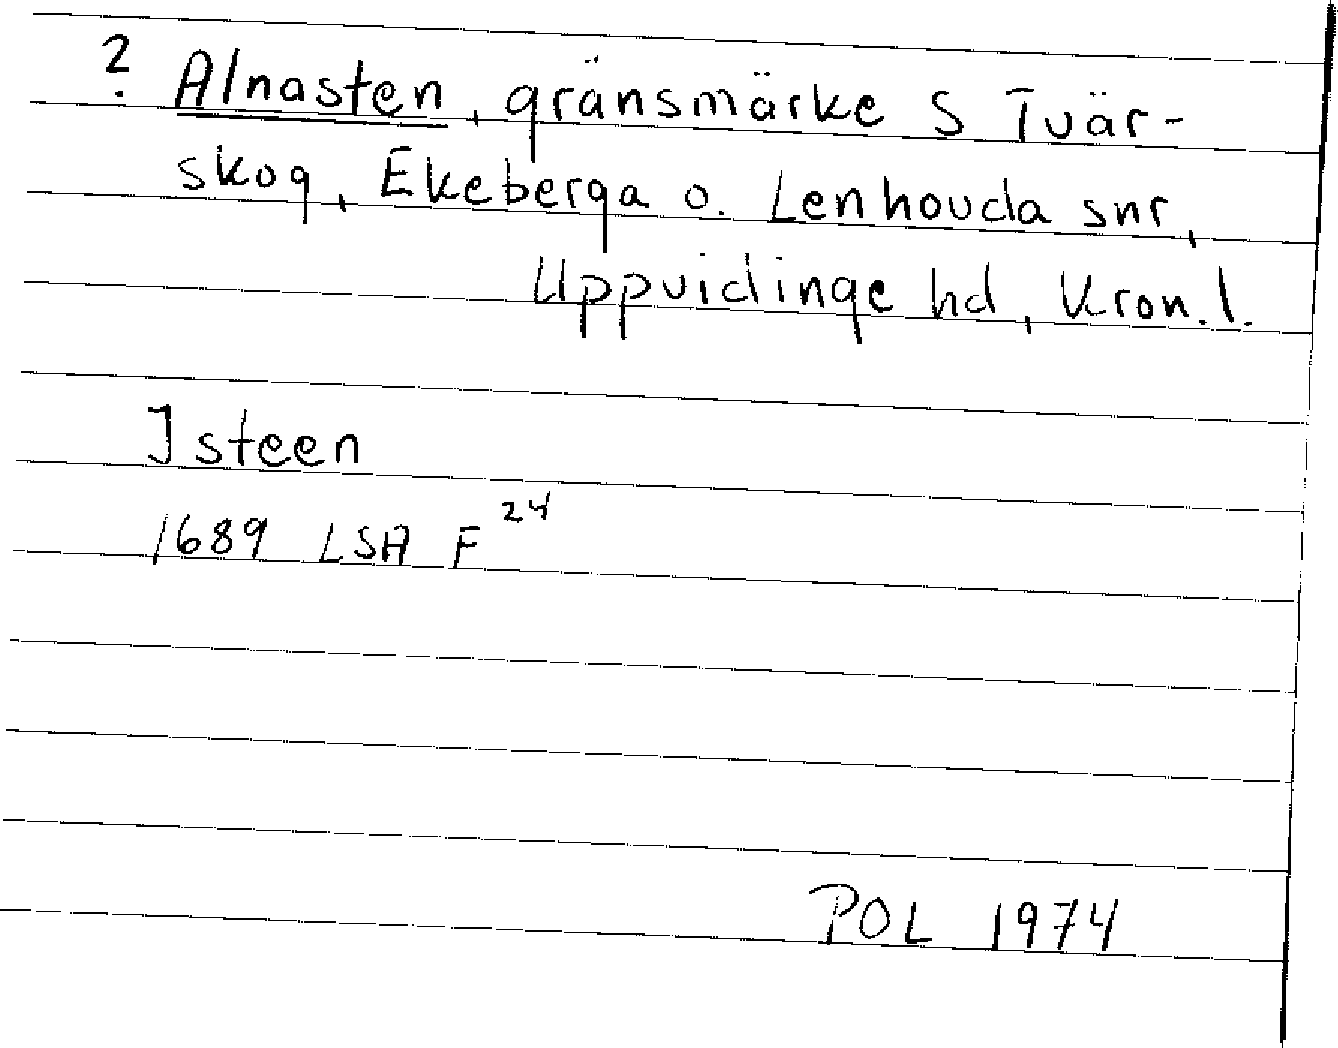 ? Alnasten, gränsmärke S Tvär-
skog, Ekeberga o. Lenhovda snr,
Uppvidinge hd, Kron. l.
Isteen
1689 LSA F 24
POL 1974